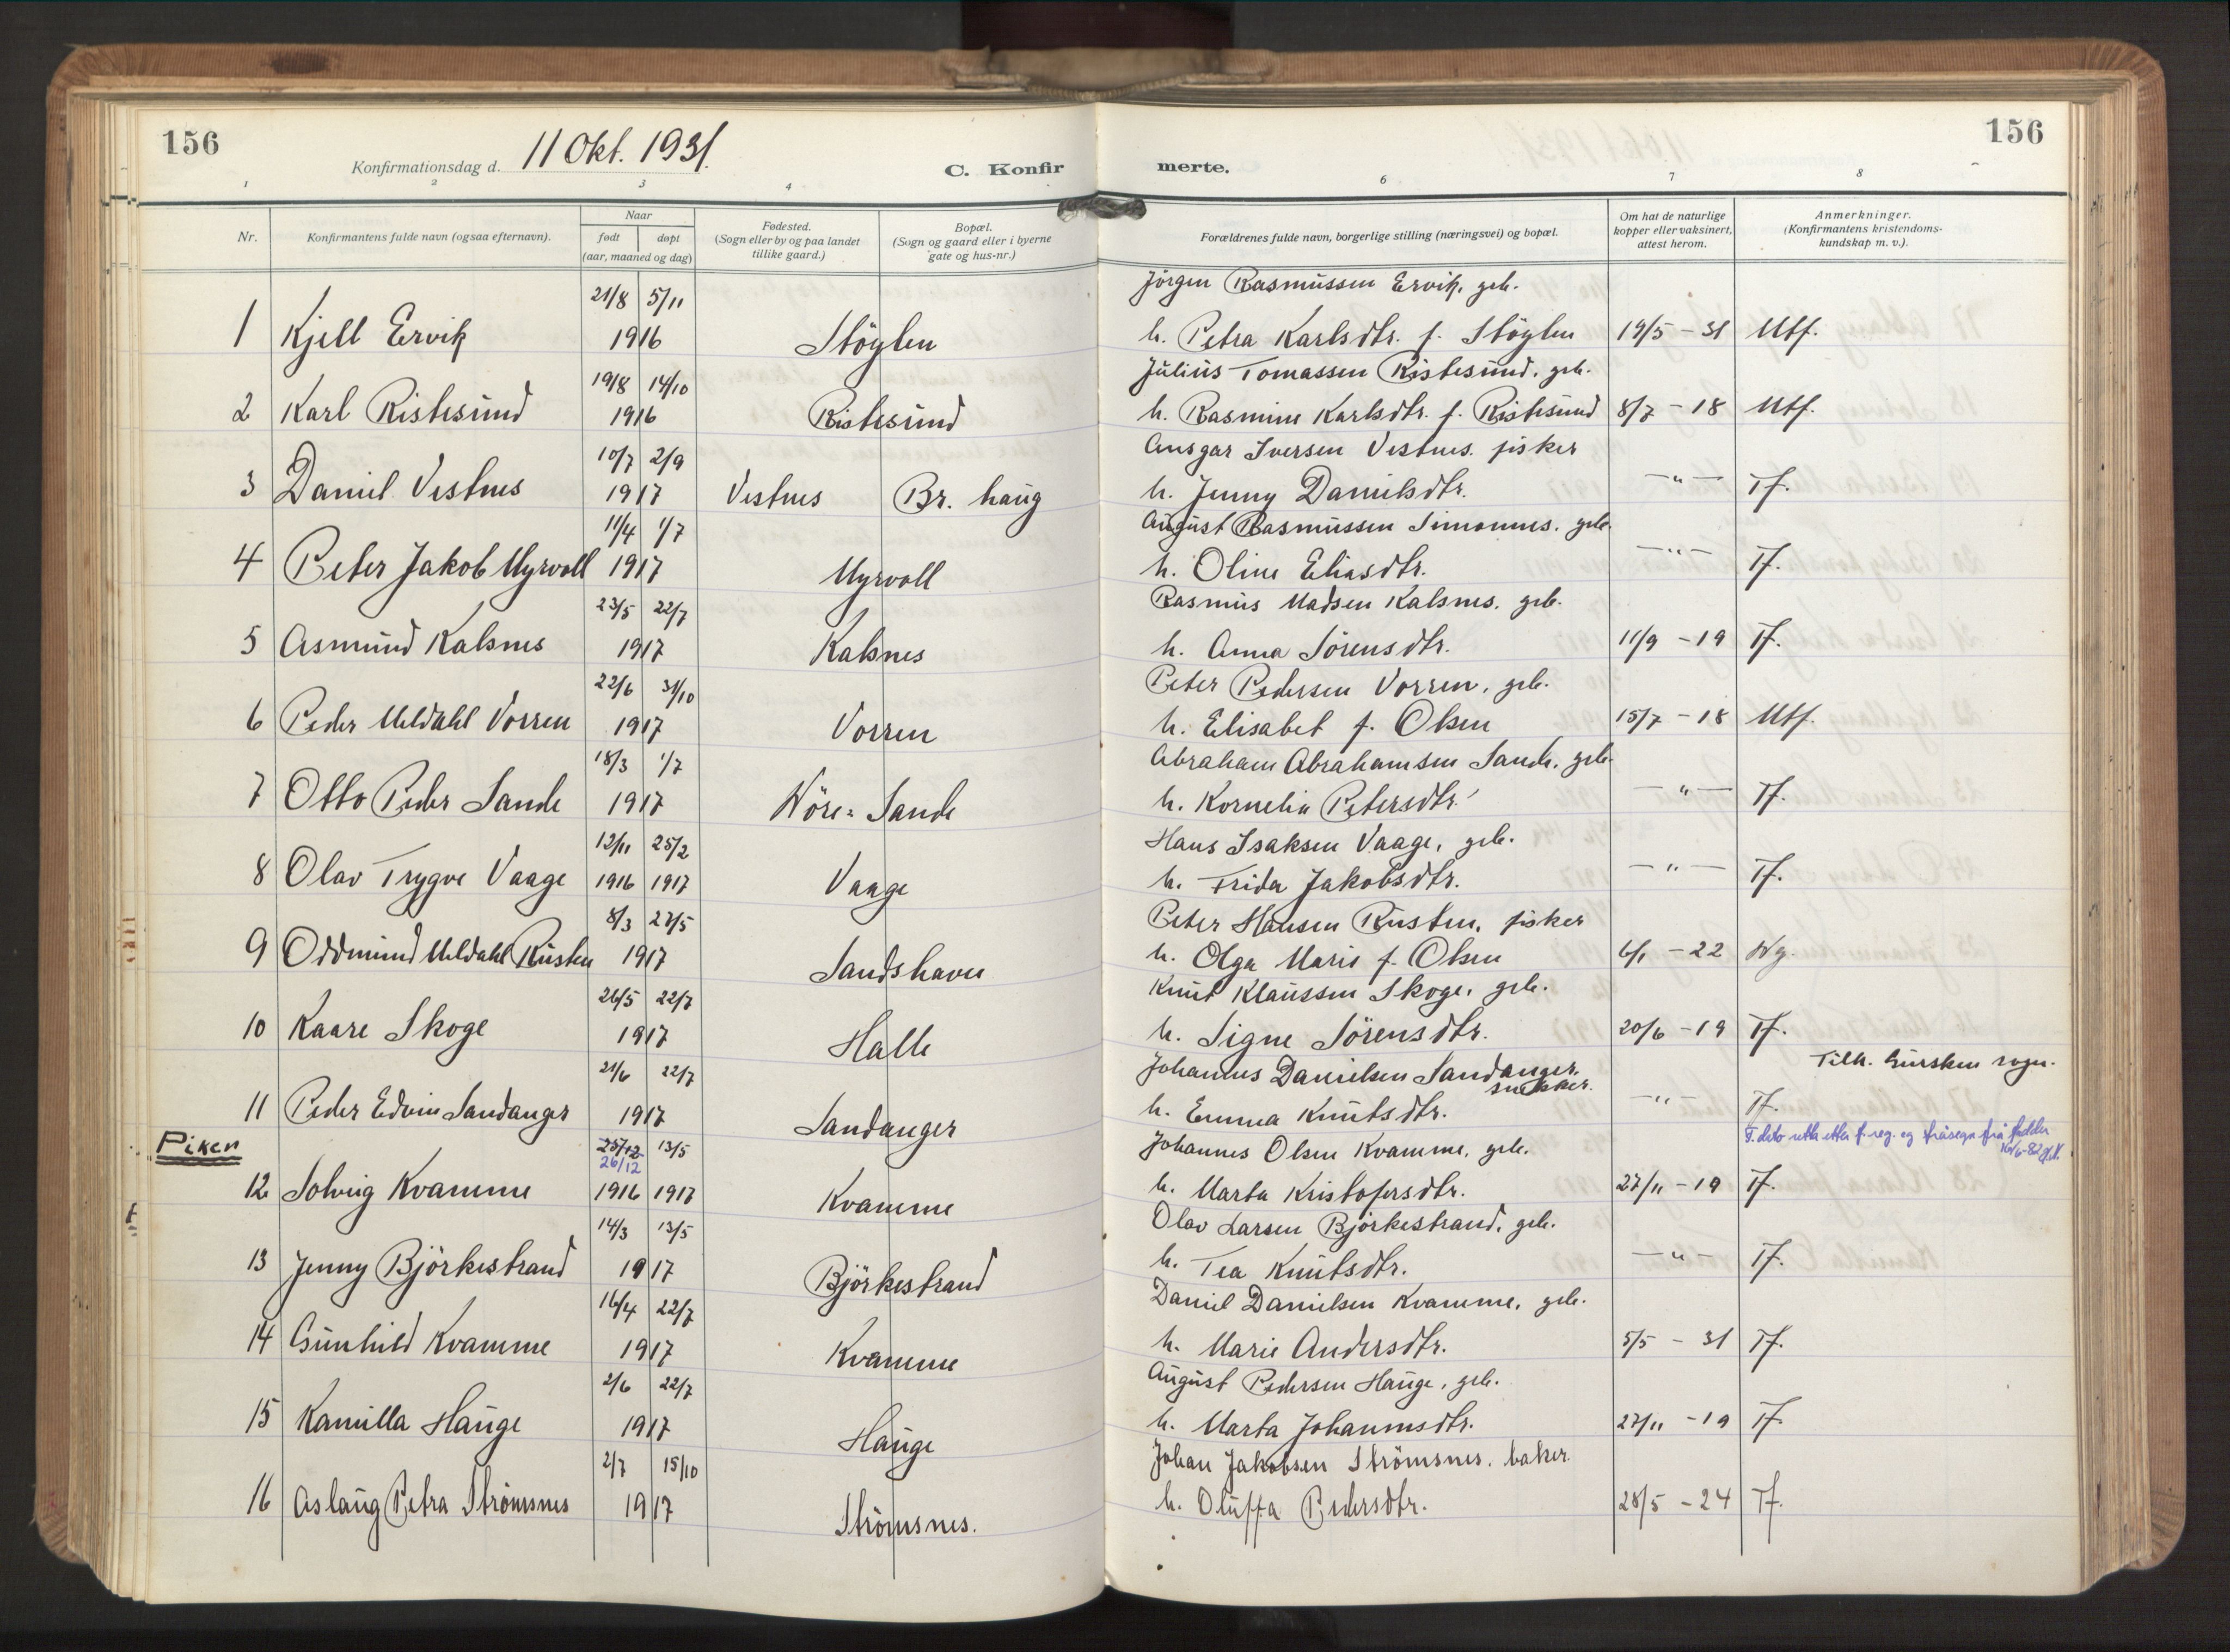 156
Konfirmationsdag d. 11 Okt. 1931.
C. Konfirmerte.
156
1 2 3 4 6 7 8
Nr.
Konfirmantens fulde navn (ogsaa efternavn).
Naar
født døpt
(aar, maaned og dag)
Fødested.
(Sogn eller by og paa landet
tillike gaard.)
Bopæl.
(Sogn og gaard eller i byerne
gate og hus-nr.)
Forældrenes fulde navn, borgerlige stilling (næringsvei) og bopæl.
Om hat de naturlige
kopper eller vaksinert,
attest herom.
Anmerkninger.
(Konfirmantens kristendoms-
kundskap m. v.).
21/8 5/11 Jörgen Rasmussen Ervik, gbr.
1 Kjell Ervik 1916 Stöylen h. Petra Karlsdtr. f. Stöylen 19/5 - 31 Mtf.
19/8 14/10 Julius Tomassen Ristesund, gbr.
2 Karl Ristesund 1916 Ristesund h. Rasmine Karlsdtr. f. Ristesund 8/7 - 18 Mtf.
10/7 2/9 Ansgar Iversen Vestnes. fisker
3 Daniel Vestnes 1917 Vestnes Br. haug h. Jenny Danielsdtr. — " — Tf.
11/4 1/7 August Rasmussen Simonnes. gbr.
4 Peter Jakob Myrvoll 1917 Myrvoll h. Oline Eliasdtr. — " — Tf.
23/5 22/7 Rasmus Madsen Kalsnes, gbr.
5 Asmund Kalsnes 1917 Kalsnes h. Anna Sörensdtr. 11/9 - 19 Tf.
22/6 31/10 Peter Pedersen Vorren, gbr.
6 Peder Meldahl Vorren 1917 Vorren h. Elisabet f. Olsen 15/7 - 18 Mtf.
18/3 1/7 Abraham Abrahamsen Sande, gbr.
7 Otto Peder Sande 1917 Nöre-Sande h. Kornelia Petersdtr. — " — Tf.
12/11 25/2 Hans Isaksen Vaage, gbr.
8 Olav Trygve Vaage 1916 1917 Vaage h. Frida Jakobsdtr. — " — Tf.
8/3 27/5 Peter Hansen Rusten, fisker
9 Oddmund Meldahl Rusten 1917 Sandshavn h. Olga Marie f. Olsen 6/1 - 22 Ng.
26/5 22/7 Knut Klaussen Skoge, gbr.
10 Kaare Skoge 1917 Halle h. Signe Sörensdtr. 20/6 - 19 Tf.
21/6 22/7 Johannes Danielsen Sandanger, snekker. Tilh. Gursken sogn.
11 Peder Edvin Sandanger 1917 Sandanger h. Emma Knutsdtr. — " — Tf.
Piker
25/12 26/12 13/5 Johannes Olsen Kvamme, gbr. F. dato retta etter f. reg. og fråsegn frå fødde
12 Solveig Kvamme 1916 1917 Kvamme h. Marta Kristofersdtr. 27/11 - 19 Tf.
14/3 13/5 Olav Larsen Björkestrand, gbr.
13 Jenny Björkestrand 1917 Björkestrand h. Tea Knutsdtr. — " — Tf.
16/4 22/7 Daniel Danielsen Kvamme, gbr.
14 Gunhild Kvamme 1917 Kvamme h. Marie Andersdtr. 5/5 - 31 Tf.
2/6 22/7 August Pedersen Hauge, gbr.
15 Kamilla Hauge 1917 Hauge h. Marta Johannesdtr. 27/11 - 19 Tf.
2/7 15/10 Johan Jakobsen Strömsnes. baker.
16 Aslaug Petra Strömsnes 1917 Strömsnes. h. Oluffa Pedersdtr. 28/5 - 24 Tf.